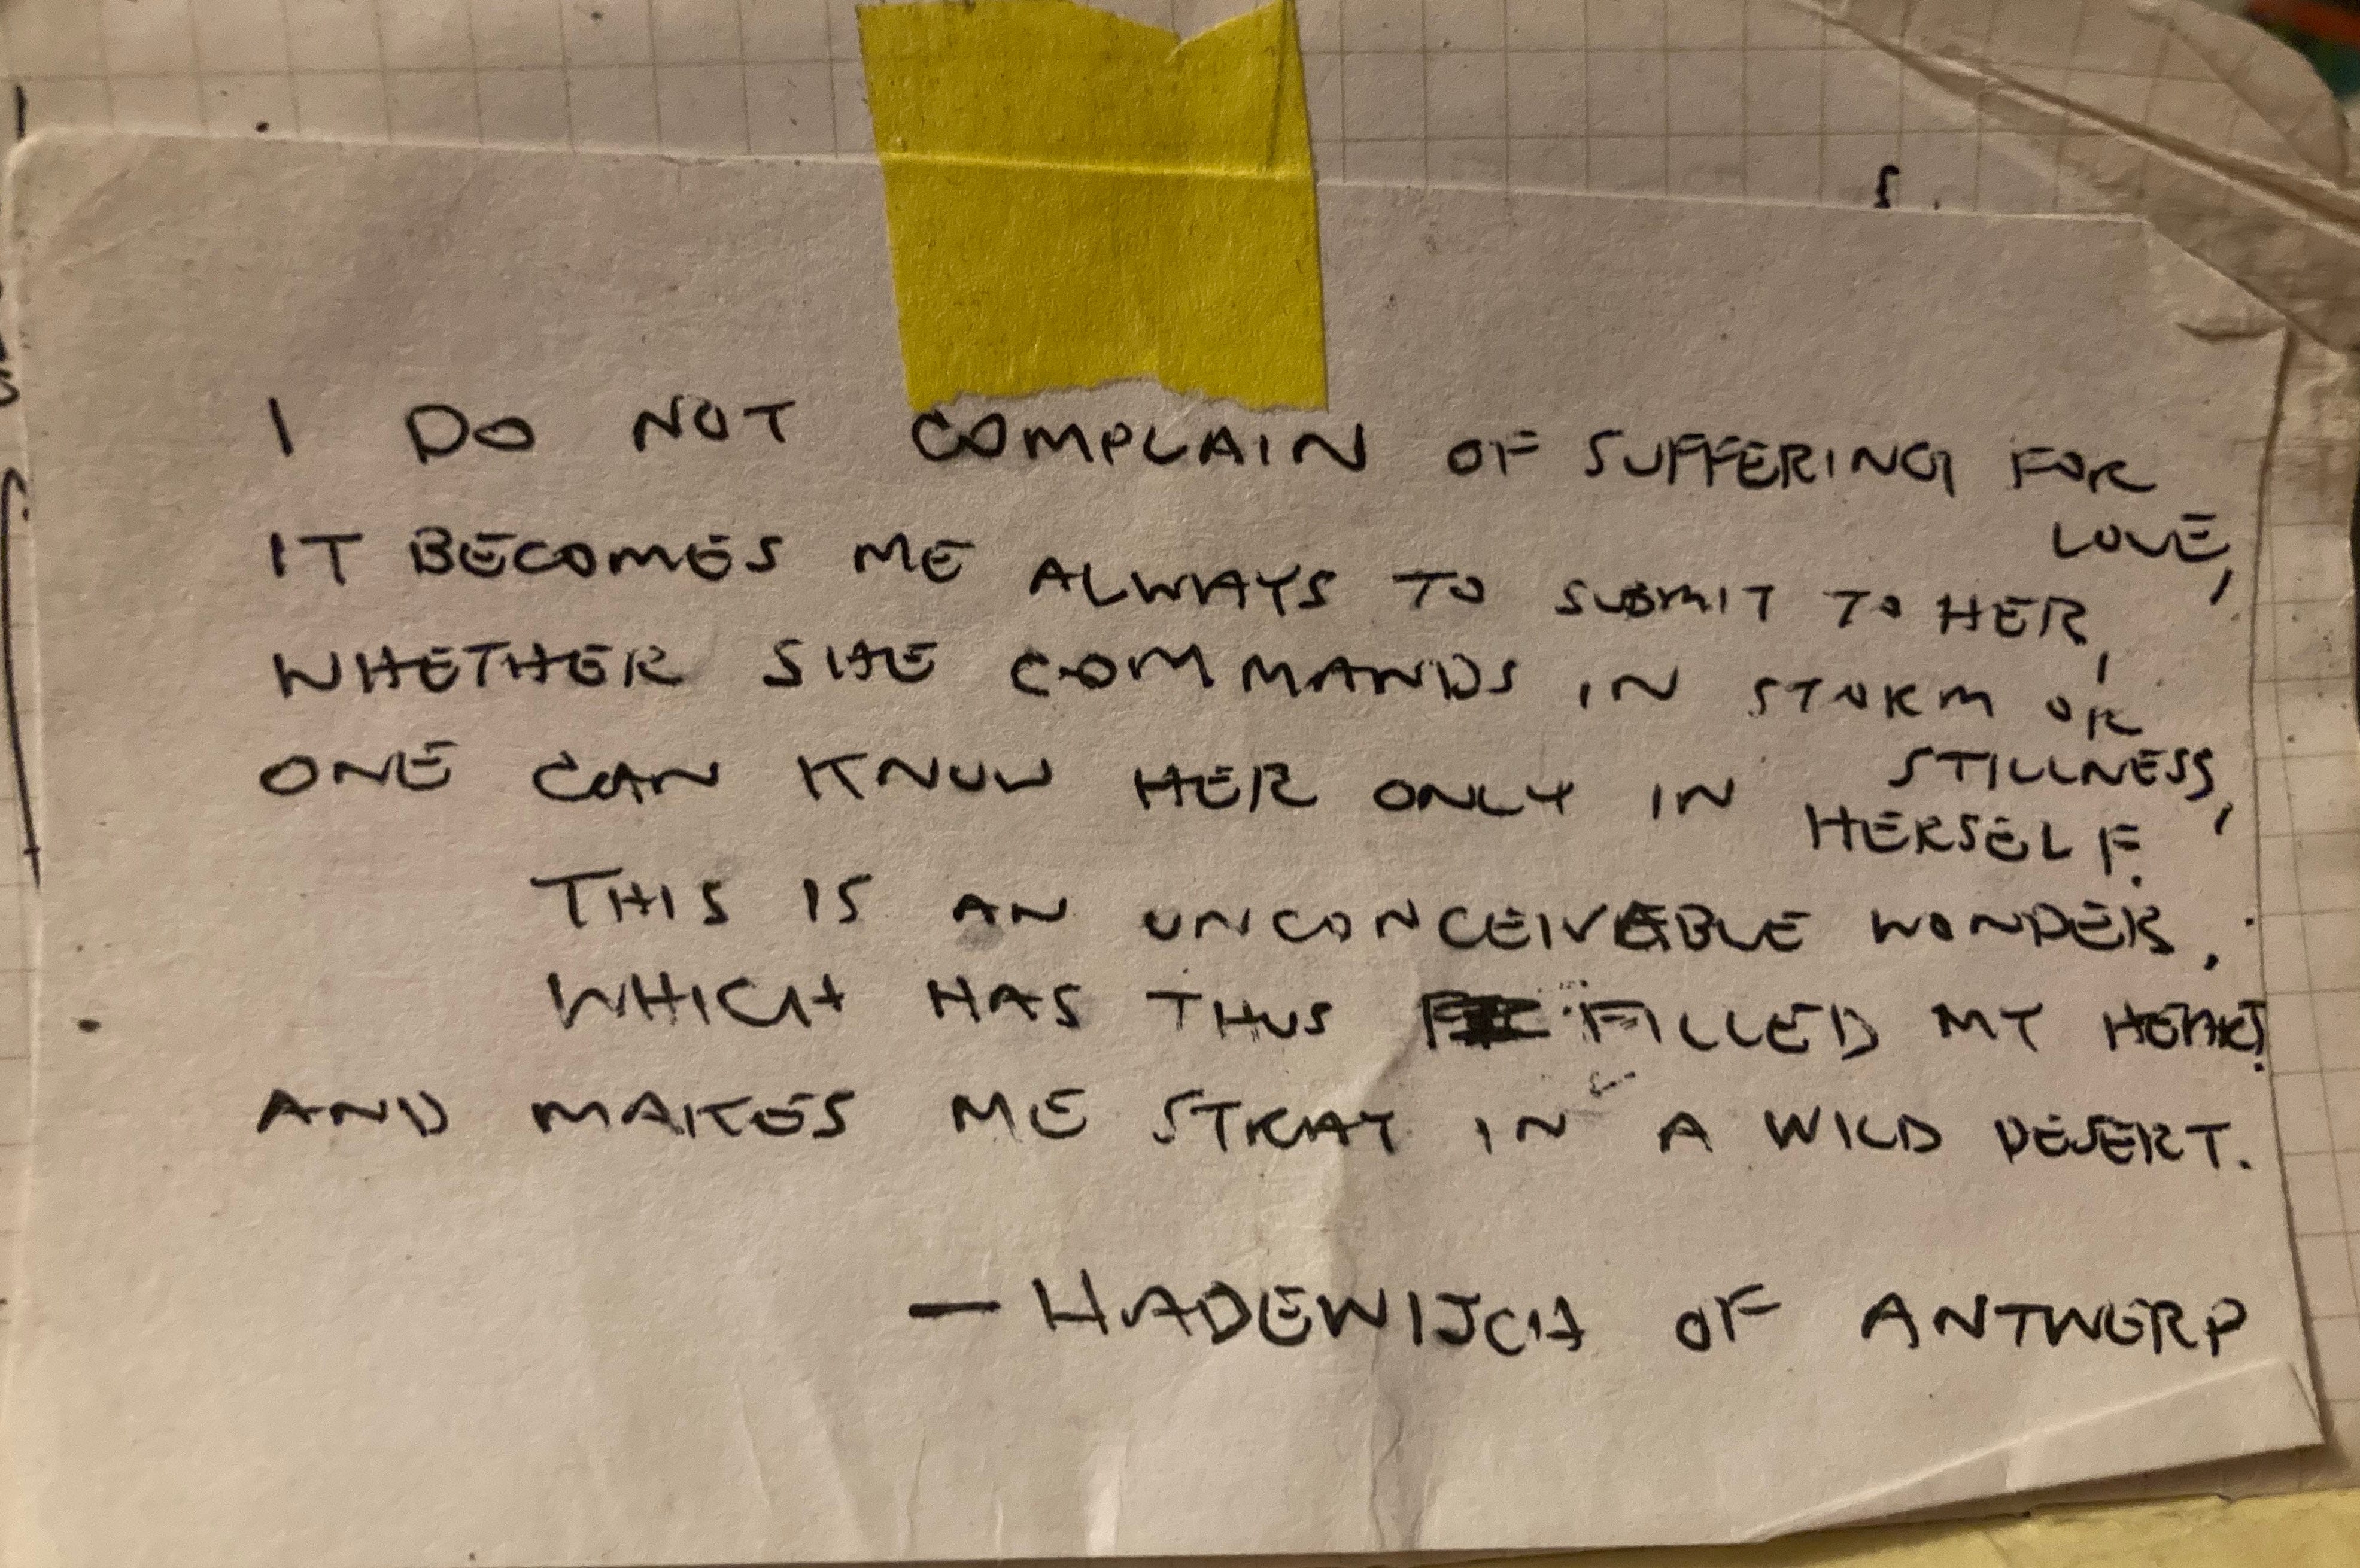 I DO NOT COMPLAIN OF SUFFERING FOR
LOVE,
IT BECOMES ME ALWAYS TO SUBMIT TO HER,
WHETHER SHE COMMANDS IN STORM OR
STILLNESS,
ONE CAN KNOW HER ONLY IN
HERSELF.
THIS IS AN UNCONCEIVABLE WONDER,
WHICH HAS THUS FILLED MY HEART
AND MAKES ME STRAY IN A WILD DESERT.
— HADEWIJCH OF ANTWERP